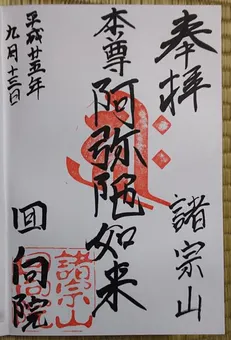 奉拝
諸宗山
本尊
阿弥陀如来
回向院
平成廿五年
九月十三日
諸宗山
回向院